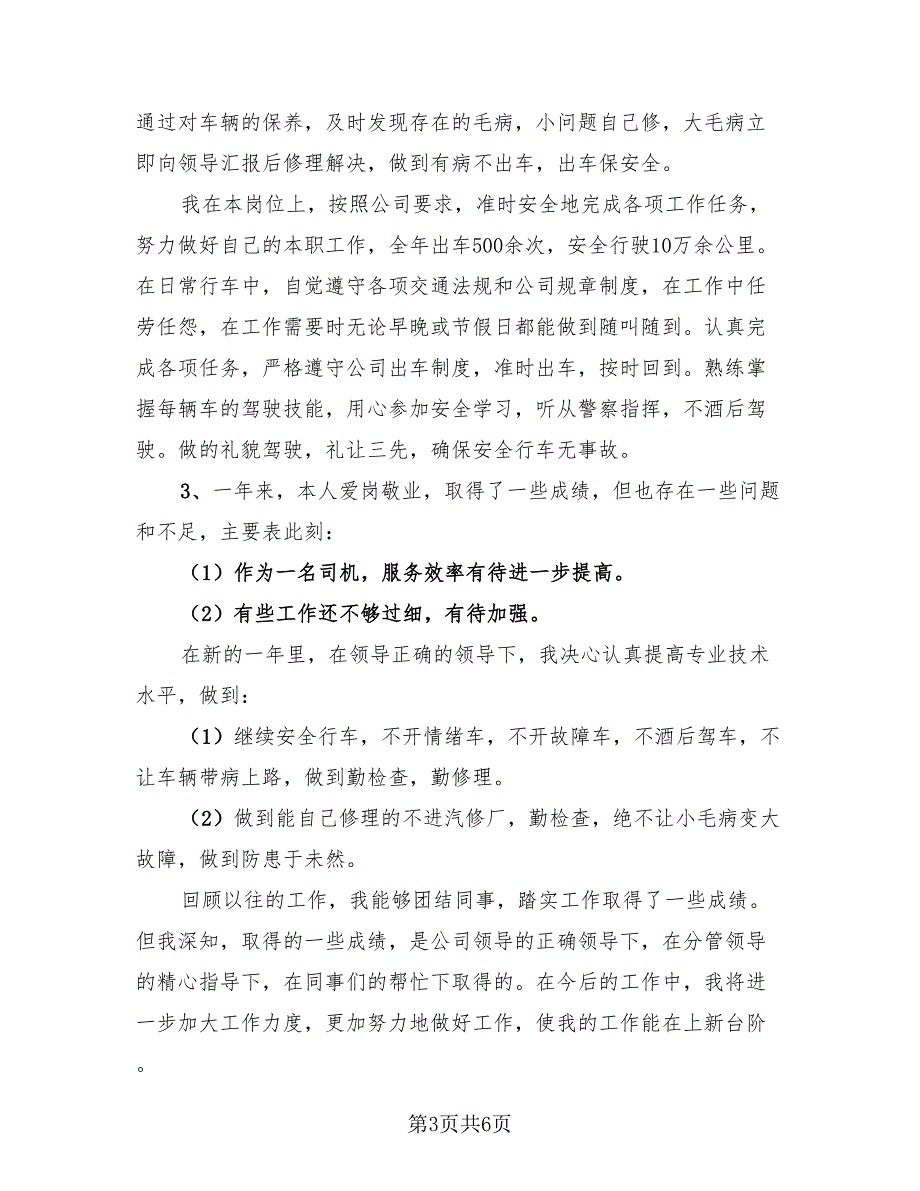 通过对车辆的保养，及时发现存在的毛病，小问题自己修，大毛病立
即向领导汇报后修理解决，做到有病不出车，出车保安全。
我在本岗位上，按照公司要求，准时安全地完成各项工作任务，
努力做好自己的本职工作，全年出车500余次，安全行驶10万余公里。
在日常行车中，自觉遵守各项交通法规和公司规章制度，在工作中任
劳任怨，在工作需要时无论早晚或节假日都能做到随叫随到。认真完
成各项任务，严格遵守公司出车制度，准时出车，按时回到。熟练掌
握每辆车的驾驶技能，用心参加安全学习，听从警察指挥，不酒后驾
驶。做的礼貌驾驶，礼让三先，确保安全行车无事故。
3、一年来，本人爱岗敬业，取得了一些成绩，但也存在一些问题
和不足，主要表此刻：
（1）作为一名司机，服务效率有待进一步提高。
（2）有些工作还不够过细，有待加强。
在新的一年里，在领导正确的领导下，我决心认真提高专业技术
水平，做到：
（1）继续安全行车，不开情绪车，不开故障车，不酒后驾车，不
让车辆带病上路，做到勤检查，勤修理。
（2）做到能自己修理的不进汽修厂，勤检查，绝不让小毛病变大
故障，做到防患于未然。
回顾以往的工作，我能够团结同事，踏实工作取得了一些成绩。
但我深知，取得的一些成绩，是公司领导的正确领导下，在分管领导
的精心指导下，在同事们的帮忙下取得的。在今后的工作中，我将进
一步加大工作力度，更加努力地做好工作，使我的工作能在上新台阶
。
第3页共6页